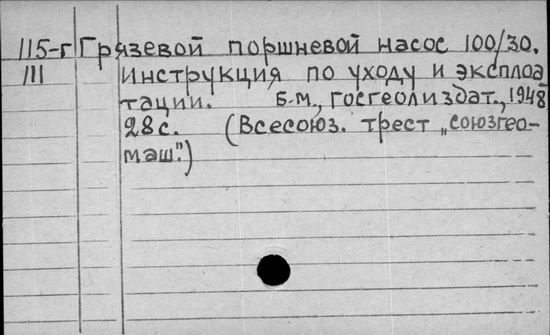 115-г Грязевой поршневой насос 100/30.
111 Инструкция по уходу и эксплоа
тации. Б.М., Госгеолиздат., 1948
28с. (Всесоюз. трест „Союзгео-
маш".)